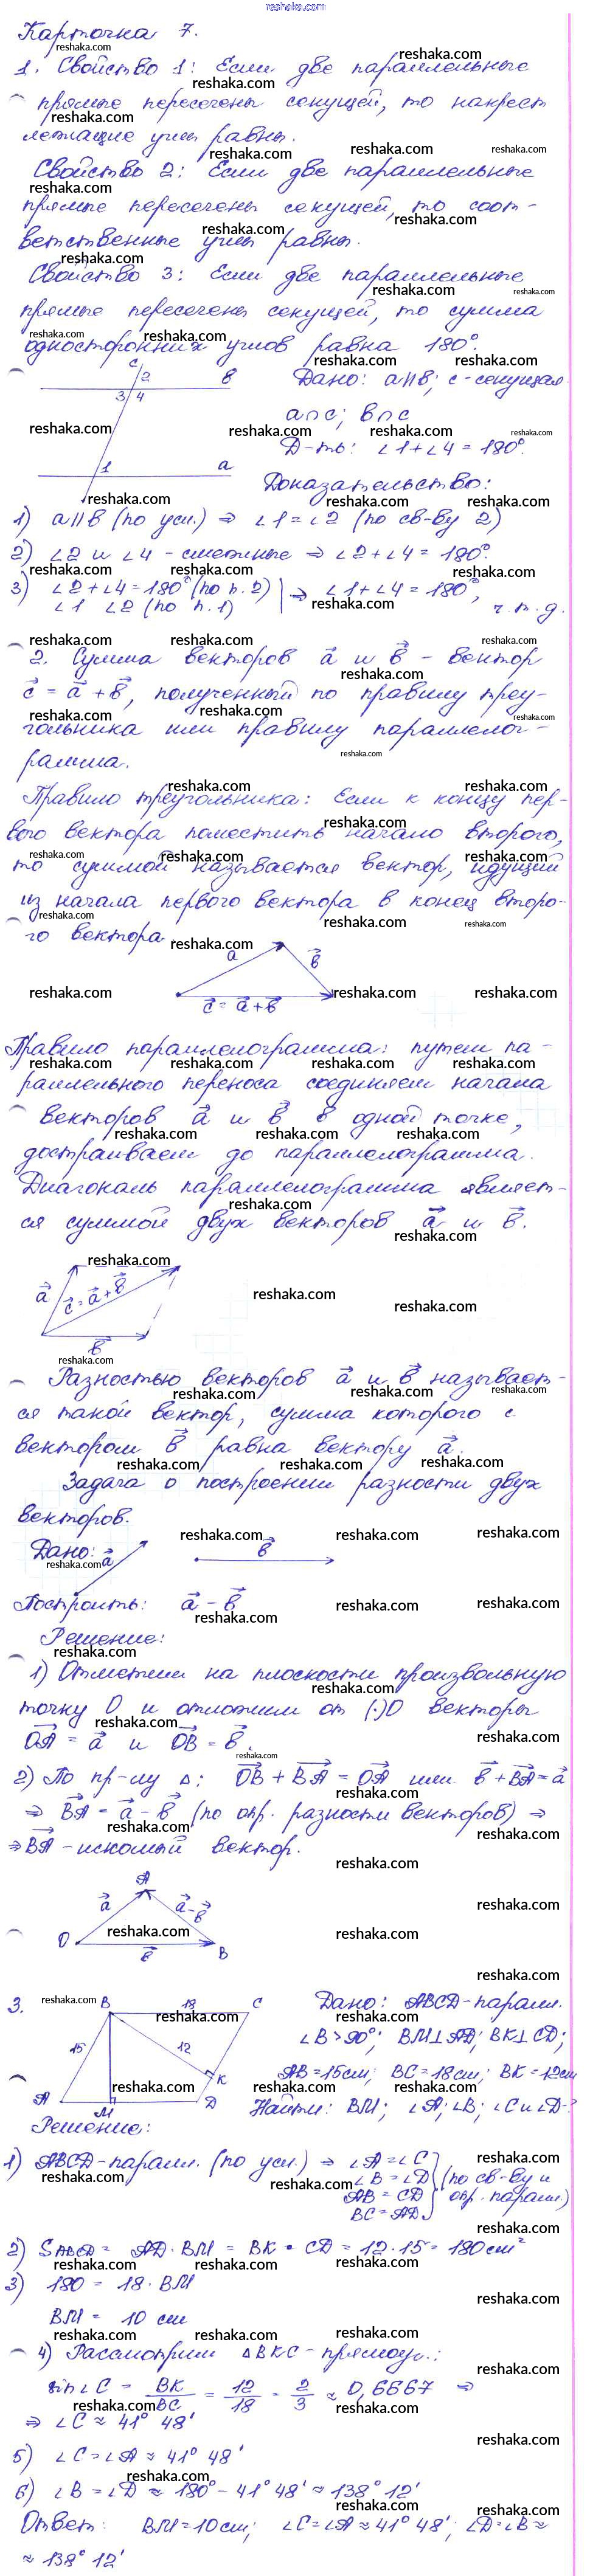 reshaka.com
Карточка 7.
1. Свойство 1: Если две параллельные
прямые пересечены секущей, то накрест
лежащие углы равны.
Свойство 2: Если две параллельные
прямые пересечены секущей, то соот-
ветственные углы равны.
Свойство 3: Если две параллельные
прямые пересечены секущей, то сумма
односторонних углов равна 180°.
c 2 b
3 4
1 a
Дано: a∥b; c-секущая
a∩c; b∩c
Д-ть: ∠1+∠4=180°.
Доказательство:
1) a∥b (по усл.) ⇒ ∠1=∠2 (по св-ву 2)
2) ∠2 и ∠4 - смежные ⇒ ∠2+∠4=180°.
3) ∠2+∠4=180° (по п.2) | ⇒ ∠1+∠4=180°,
∠1 ∠2 (по п.1) ч.т.д.
2. Сумма векторов a⃗ и b⃗ - вектор
c⃗ = a⃗ + b⃗, полученный по правилу треу-
гольника или правилу параллелог-
рамма.
Правило треугольника: Если к концу пер-
вого вектора поместить начало второго,
то суммой называется вектор, идущий
из начала первого вектора в конец второ-
го вектора
a b⃗
c⃗ = a⃗ + b⃗
Правило параллелограмма: путем па-
раллельного переноса соединяем начала
векторов a⃗ и b⃗ в одной точке,
достраиваем до параллелограмма.
Диагональ параллелограмма являет-
ся суммой двух векторов a⃗ и b⃗.
a⃗ c⃗ = a⃗ + b⃗
b⃗
Разностью векторов a⃗ и b⃗ называет-
ся такой вектор, сумма которого с
вектором b⃗ равна вектору a⃗.
Задача о построении разности двух
векторов.
Дано: a⃗ b⃗
Построить: a⃗ - b⃗
Решение:
1) Отметим на плоскости произвольную
точку O и отложим от (·)O векторы
OA⃗ = a⃗ и OB⃗ = b⃗.
2) По пр-лу Δ: OB⃗ + BA⃗ = OA⃗ или b⃗ + BA⃗ = a⃗
⇒ BA⃗ = a⃗ - b⃗ (по опр. разности векторов) ⇒
⇒ BA⃗ - искомый вектор.
A
a⃗ a⃗-b⃗
O b⃗ B
3. B 18 C
15 12
K
A M D
Дано: ABCD-паралл.
∠B>90°; BM⊥AD; BK⊥CD;
AB=15см; BC=18см; BK=12см
Найти: BM; ∠A; ∠B; ∠C и ∠D-?
Решение:
1) ABCD-паралл. (по усл.) ⇒ ∠A=∠C
∠B=∠D (по св-ву и
AB=CD опр. паралл.)
BC=AD
2) SABCD = AD·BM = BK·CD = 12·15 = 180 см²
3) 180 = 18·BM
BM = 10 см
4) Рассмотрим ΔBKC-прямоуг.:
sin∠C = BK/BC = 12/18 = 2/3 ≈ 0,6667 ⇒
⇒ ∠C ≈ 41° 48'
5) ∠C=∠A ≈ 41° 48'
6) ∠B=∠D ≈ 180° - 41° 48' ≈ 138° 12'
Ответ: BM=10см; ∠C=∠A≈41° 48'; ∠D=∠B≈
≈ 138° 12'